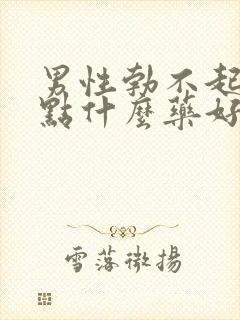 男性勃不起
點什麼藥好
雪落微揚